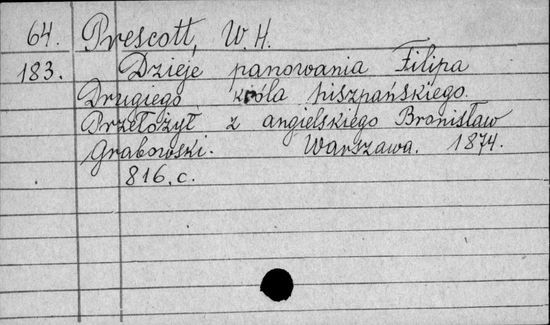 64. Prescott, W. H.
183. Dzieje panowania Filipa
Drugiego króla hiszpańskiego.
Przełożył z angielskiego Bronisław
Grabowski. Warszawa. 1874.
816. c.